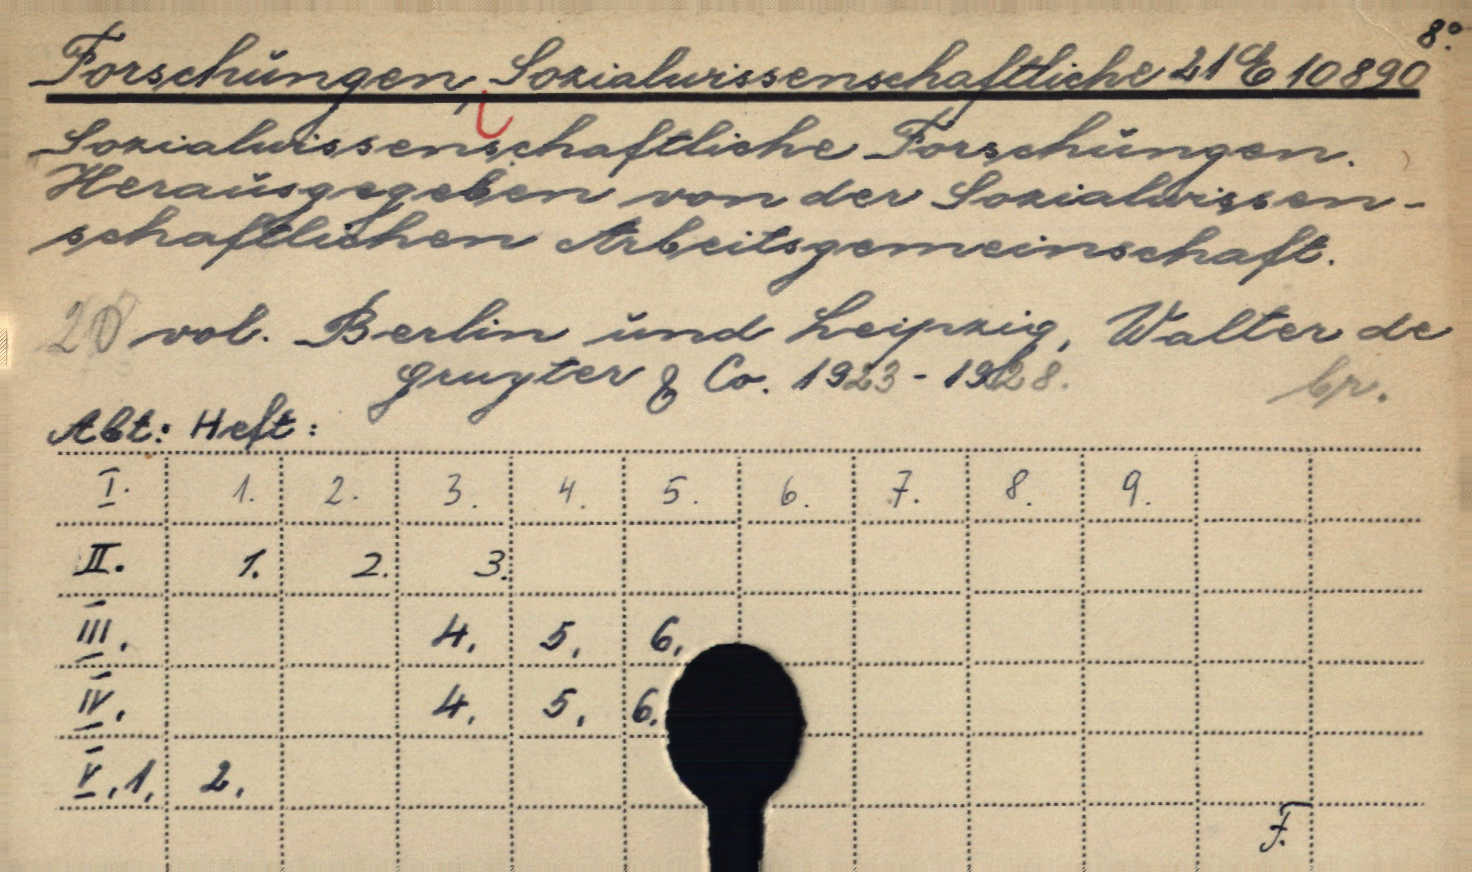 8°.
Forschŭngen, Sozialwissenschaftliche 21 E 10890
Sozialwissenschaftliche Forschŭngen.
Heraŭsgegeben von der Sozialwissen-
schaftlichen Arbeitsgemeinschaft.
20 vol. Berlin ŭnd Leipzig, Walter de
Gruyter & Co. 1923-1928. br.
Abt: Heft:
I. 1. 2. 3. 4. 5. 6. 7. 8. 9.
II. 1. 2. 3.
III. 4. 5. 6.
IV. 4. 5. 6.
V. 1. 2.
F.